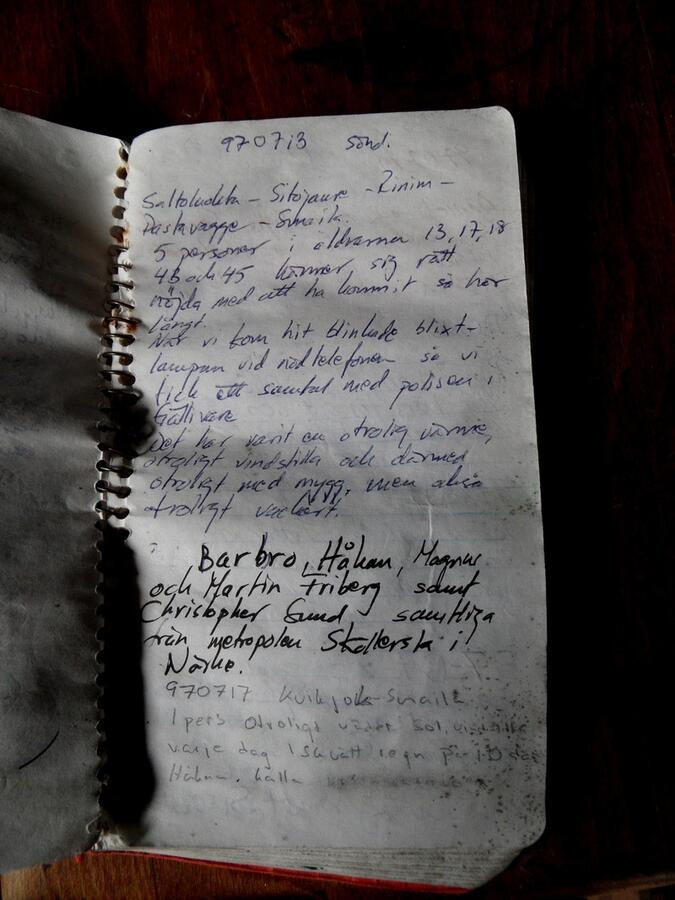 970713 sönd.
Saltoluokta - Sitojaure - Rinim -
Pastavagge - Smaila.
5 personer i åldrarna 13, 17, 18
43 och 45 känner sig rätt
nöjda med att ha kommit så här
långt.
När vi kom hit blinkade blixt-
lampan vid nödtelefonen så vi
fick ett samtal med polisen i
Gällivare
Det har varit en otrolig värme,
otroligt vindstilla och därmed
otroligt med mygg, men också
otroligt vackert.
Barbro, Håkan, Magnus
och Martin Friberg samt
Christopher Sund samtliga
från metropolen Skollersta i
Närke.
970717 Kvikkjokk-Smaila
1 pers otroligt väder sol,
varje dag 1 skvätt regn på 10